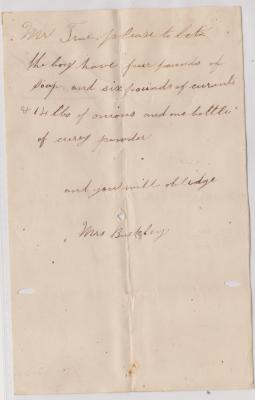 Mr True please to let
the boy have four pounds of
soap and six pounds of curants
& 14 lbs of onions and one bottle
of curey powder
and you will oblige
Mrs